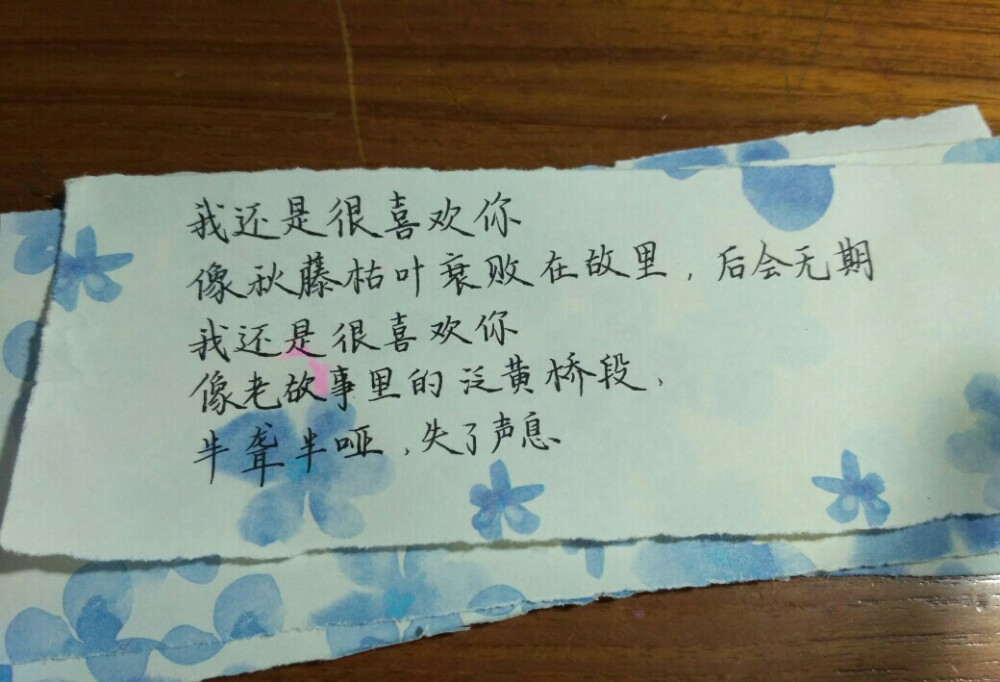 我还是很喜欢你
像秋藤枯叶衰败在故里，后会无期
我还是很喜欢你
像老故事里的泛黄桥段，
半聋半哑，失了声息